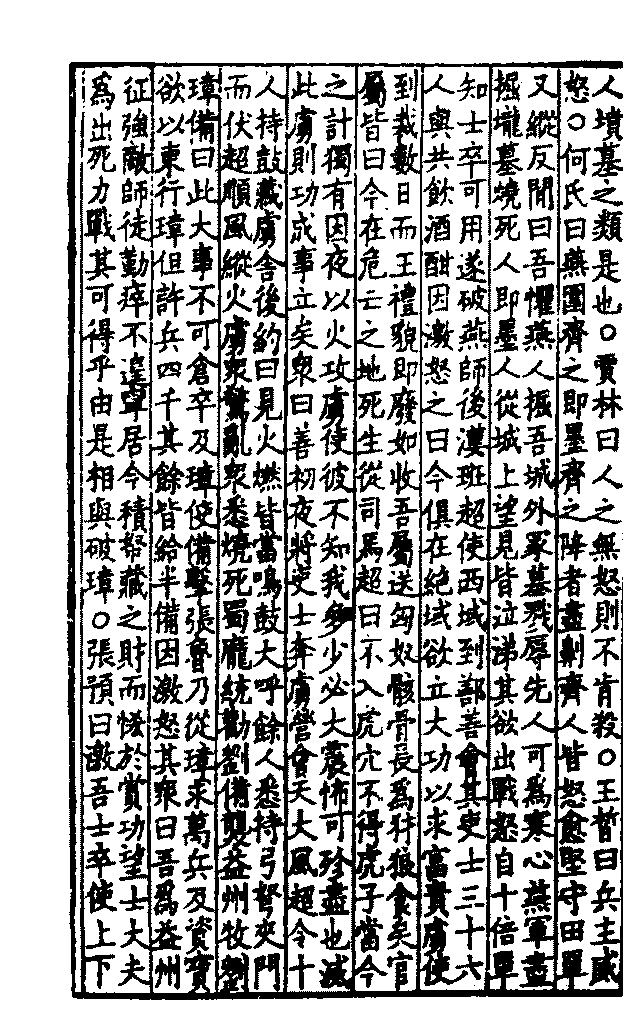 人墳墓之類是也○賈林曰人之無怒則不肯殺○王晳曰兵主威
怒○何氏曰燕圍齊之即墨齊之降者盡劓齊人皆怒愈堅守田單
又縱反間曰吾懼燕人掘吾城外冢墓戮辱先人可為寒心燕軍盡
掘壠墓燒死人即墨人從城上望見皆泣涕其欲出戰怒自十倍單
知士卒可用遂破燕師後漢班超使西域到鄯善會其吏士三十六
人與共飲酒酣因激怒之曰今俱在絶域欲立大功以求富貴虜使
到裁數日而王禮貌即廢如收吾屬送匈奴骸骨長為犲狼食矣官
屬皆曰今在危亡之地死生從司馬超曰不入虎穴不得虎子當今
之計獨有因夜以火攻虜使彼不知我多少必大震怖可殄盡也滅
此虜則功成事立矣衆曰善初夜將吏士奔虜營會天大風超令十
人持鼓藏虜舎後約曰見火燃皆當鳴鼓大呼餘人悉持弓弩夾門
而伏超順風縱火虜衆驚亂衆悉燒死蜀龐統勸劉備襲益州牧劉
璋備曰此大事不可倉卒及璋使備擊張魯乃從璋求萬兵及資寶
欲以東行璋但許兵四千其餘皆給半備因激怒其衆曰吾為益州
征強敵師徒勤瘁不遑寧居今積帑藏之財而恡於賞功望士大夫
為出死力戰其可得乎由是相與破璋○張預曰激吾士卒使上下